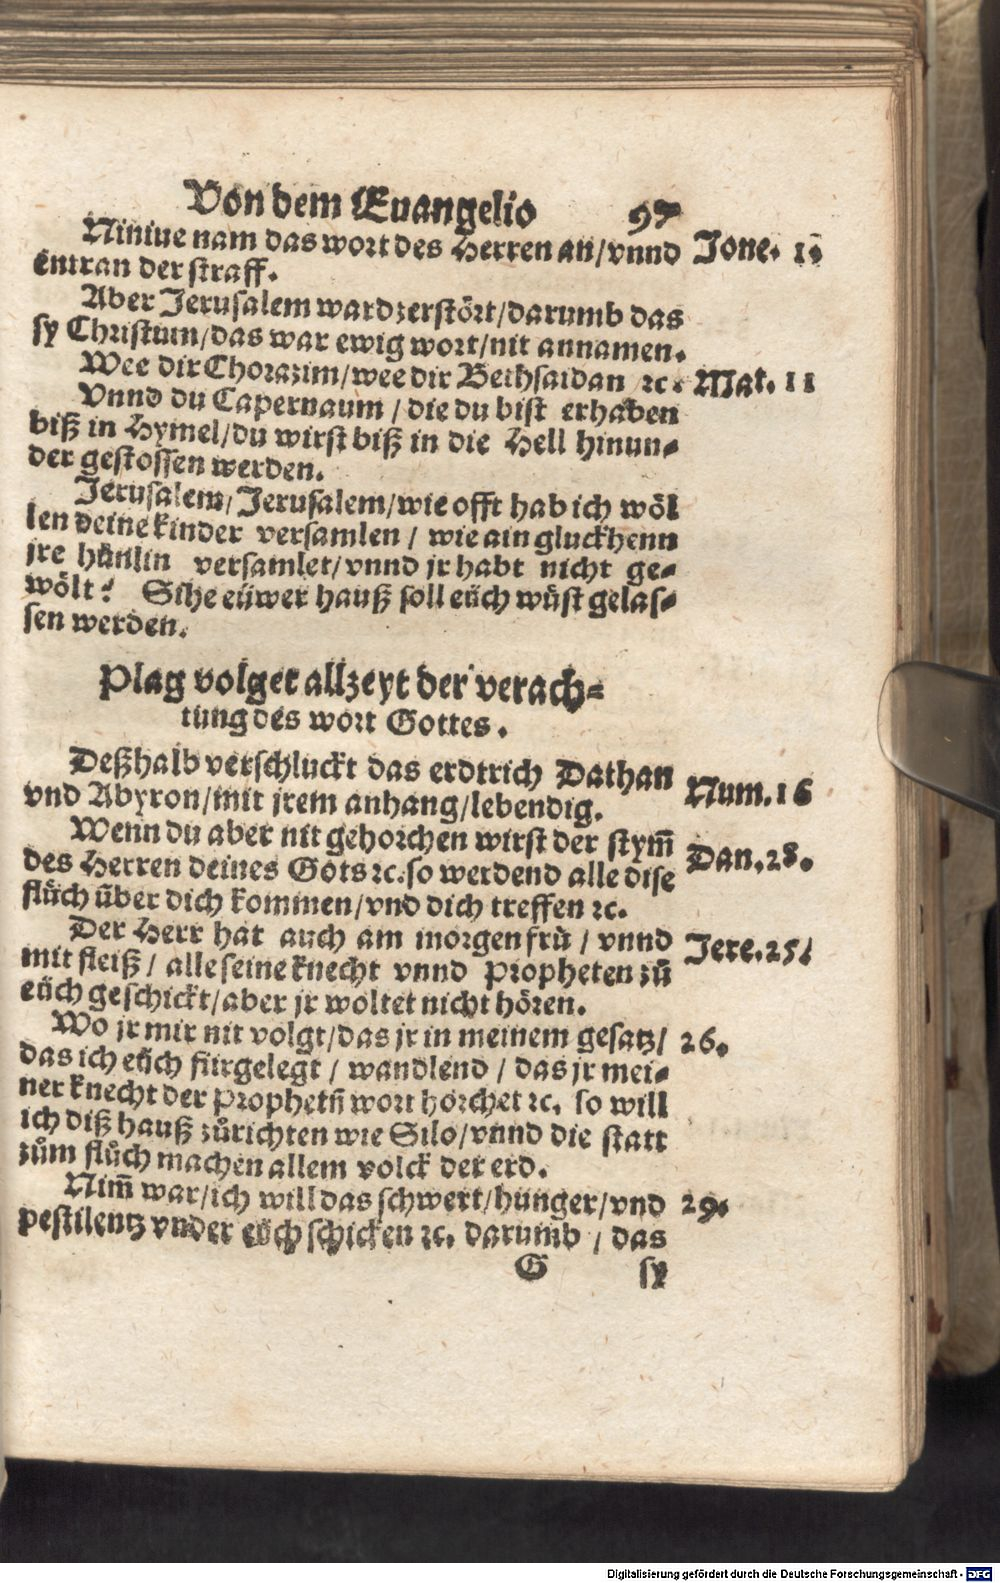 Von dem Euangelio 97
Niniue nam das wort des Herren an/vnnd Jone. 1.
entran der straff.
Aber Jerusalem ward zerstört/darumb das
sy Christum/das war ewig wort/nit annamen.
Wee dir Chorazim/wee dir Bethsaidan ꝛc. Mat. 11
Vnnd du Capernaum / die du bist erhaben
biß in Hymel/du wirst biß in die Hell hinun-
der gestossen werden.
Jerusalem/Jerusalem/wie offt hab ich wöl
len deine kinder versamlen / wie ain gluckhenn
jre hünlin versamlet/vnnd jr habt nicht ge-
wölt? Sihe eüwer hauß soll eüch wüst gelas-
sen werden.
Plag volget allzeyt der verach-
tung des wort Gottes.
Deßhalb verschluckt das erdtrich Dathan
vnd Abyron/mit jrem anhang/lebendig. Num. 16
Wenn du aber nit gehorchen wirst der stym̃
des Herren deines Gots ꝛc. so werdend alle dise Dan. 28.
flüch über dich kommen/vnd dich treffen ꝛc.
Der Herr hat auch am morgen frü / vnnd Jere. 25.
mit fleiß / alle seine knecht vnnd Propheten zů
eüch geschickt/aber jr woltet nicht hören.
Wo jr mir nit volgt/das jr in meinem gesatz/ 26.
das ich eüch fürgelegt / wandlend / das jr mei-
ner knecht der Prophetñ wort horchet ꝛc. so will
ich diß hauß zůrichten wie Silo/vnnd die statt
zům flůch machen allem volck der erd.
Nim̃ war/ich will das schwert/hunger/vnd 29.
pestilentz vnder eüch schicken ꝛc. darumb / das
G sy
Digitalisierung gefördert durch die Deutsche Forschungsgemeinschaft - DFG